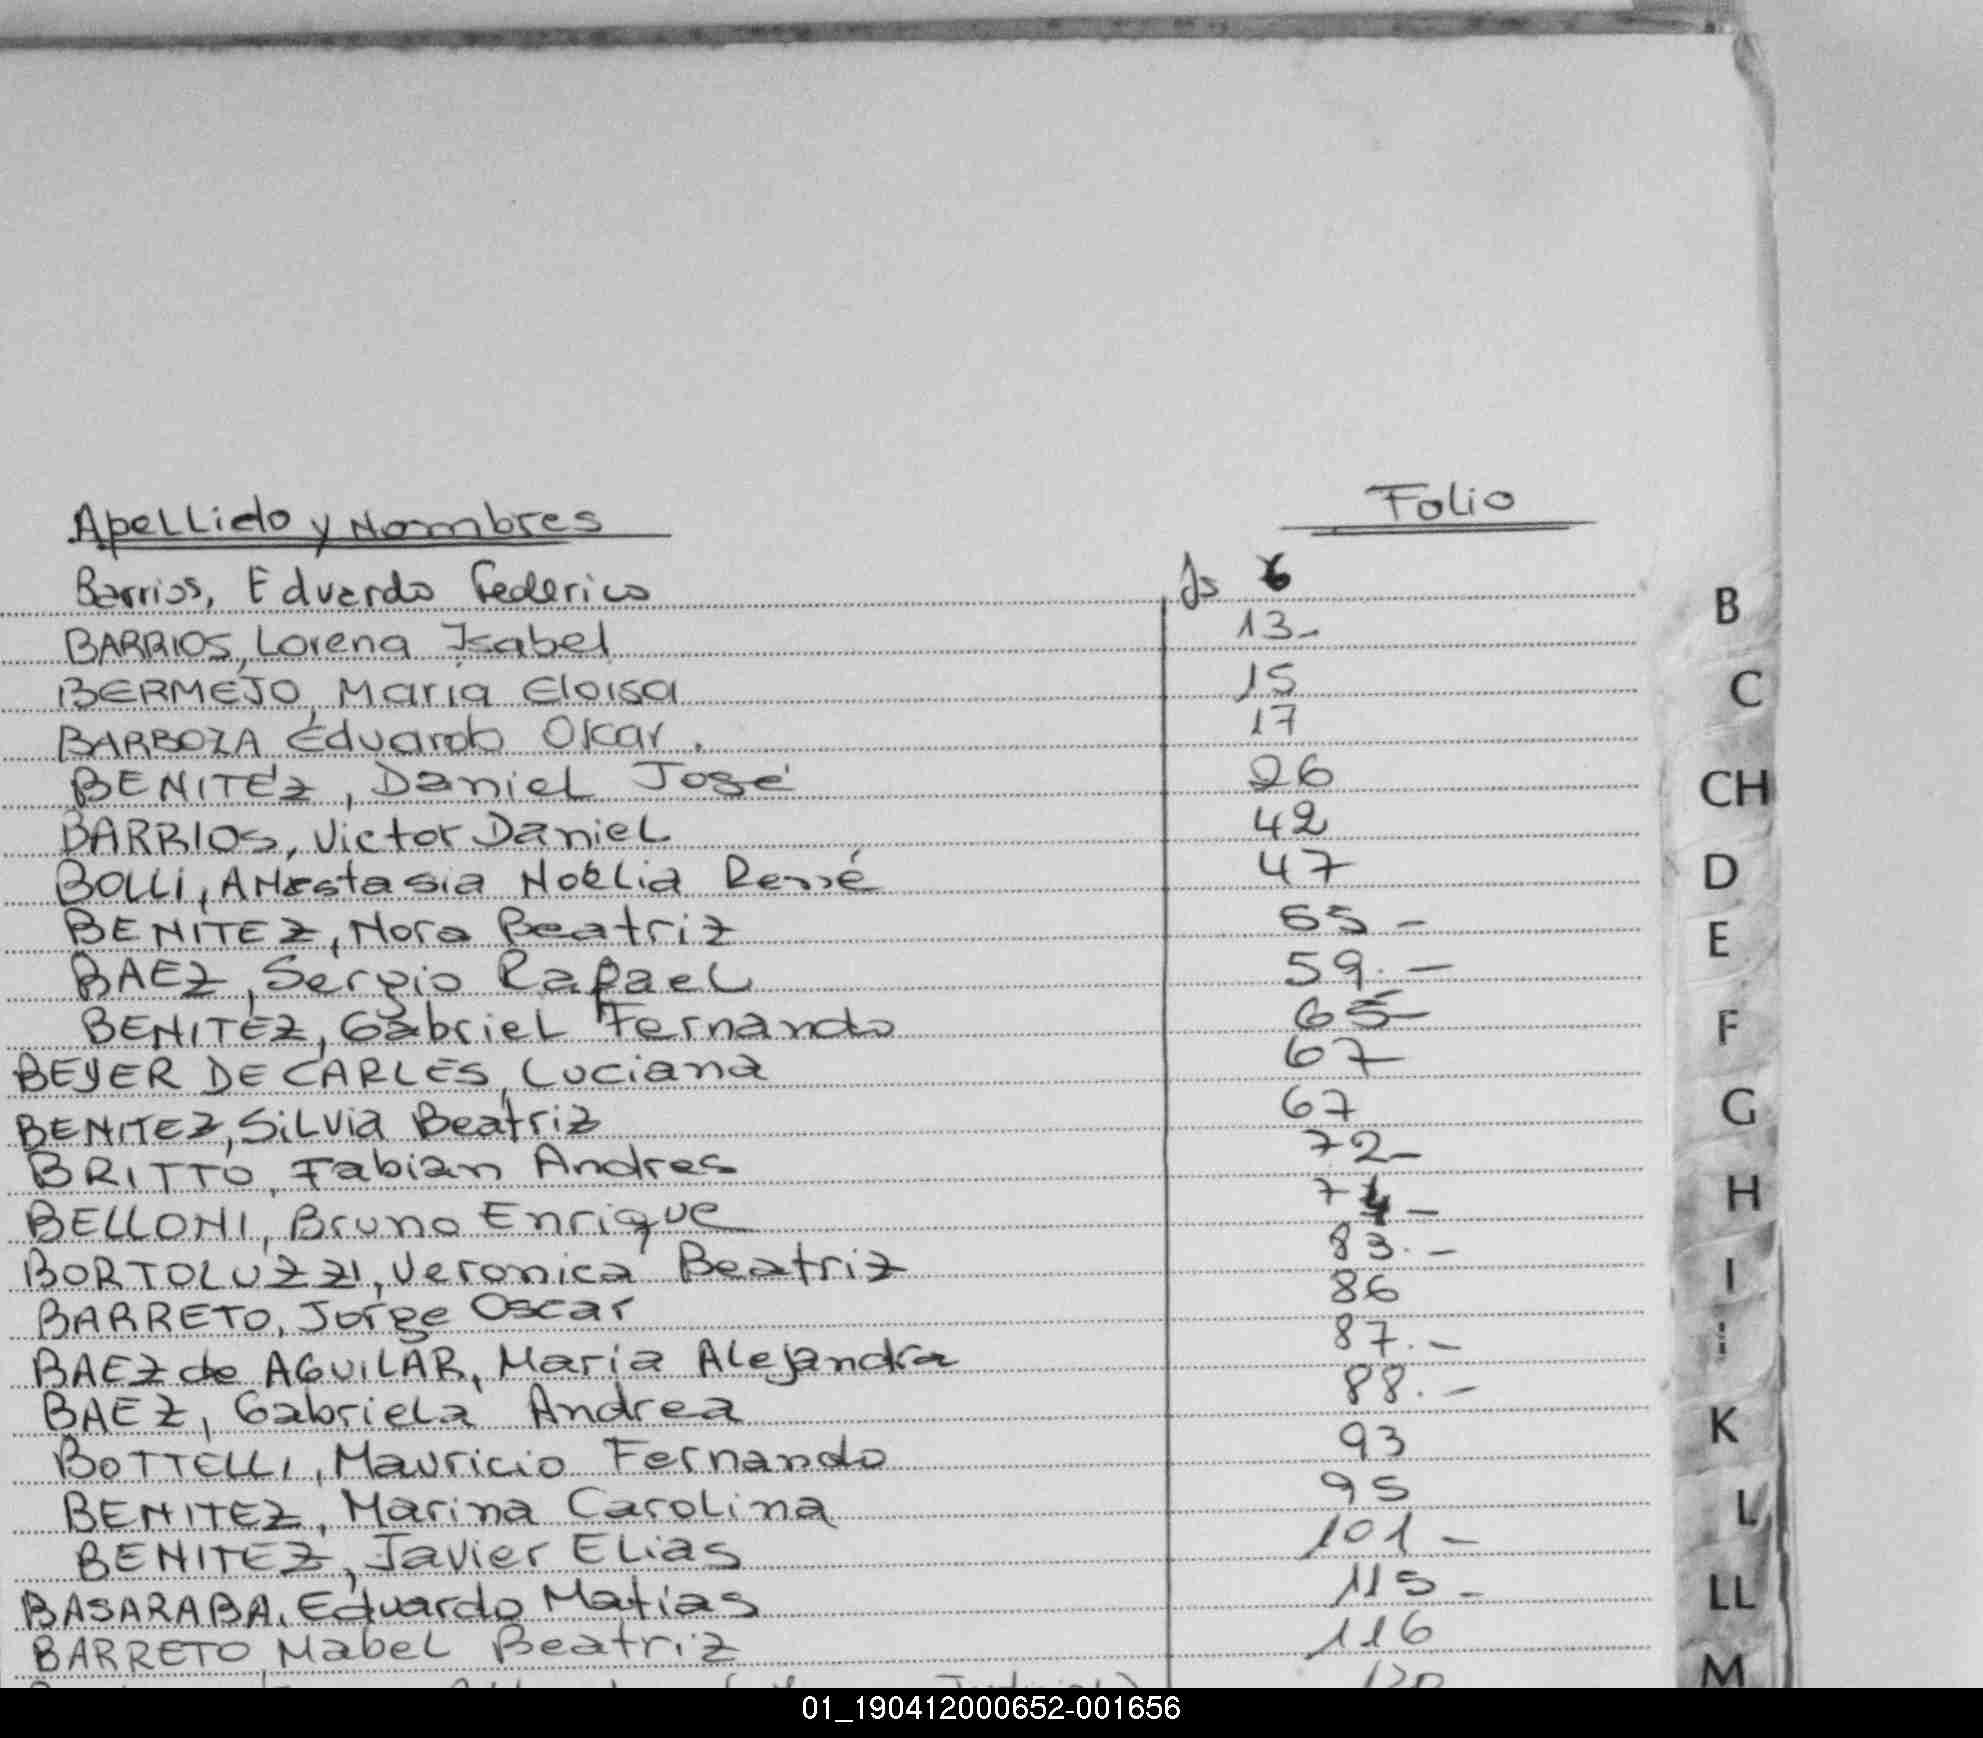 Apellido y Nombres Folio
Barrios, Eduardo Federico fs 6
BARRIOS, Lorena Isabel 13-
BERMEJO, Maria Eloisa 15
BARBOZA Eduardo Oscar. 17
BENITEZ, Daniel José 26
BARRIOS, Victor Daniel 42
BOLLI, Anastasia Noelia René 47
BENITEZ, Nora Beatriz 55-
BAEZ, Sergio Rafael 59.-
BENITEZ, Gabriel Fernando 65-
BEYER DE CARLES, Luciana 67
BENITEZ, Silvia Beatriz 67
BRITTO, Fabian Andres 72-
BELLONI, Bruno Enrique 74-
BORTOLUZZI, Veronica Beatriz 83.-
BARRETO, Jorge Oscar 86
BAEZ de AGUILAR, Maria Alejandra 87.-
BAEZ, Gabriela Andrea 88.-
BOTTELLI, Mauricio Fernando 93
BENITEZ, Marina Carolina 95
BENITEZ, Javier Elias 101-
BASARABA, Eduardo Matias 115-
BARRETO, Mabel Beatriz 116
B
C
CH
D
E
F
G
H
I
K
L
LL
M
01_190412000652-001656